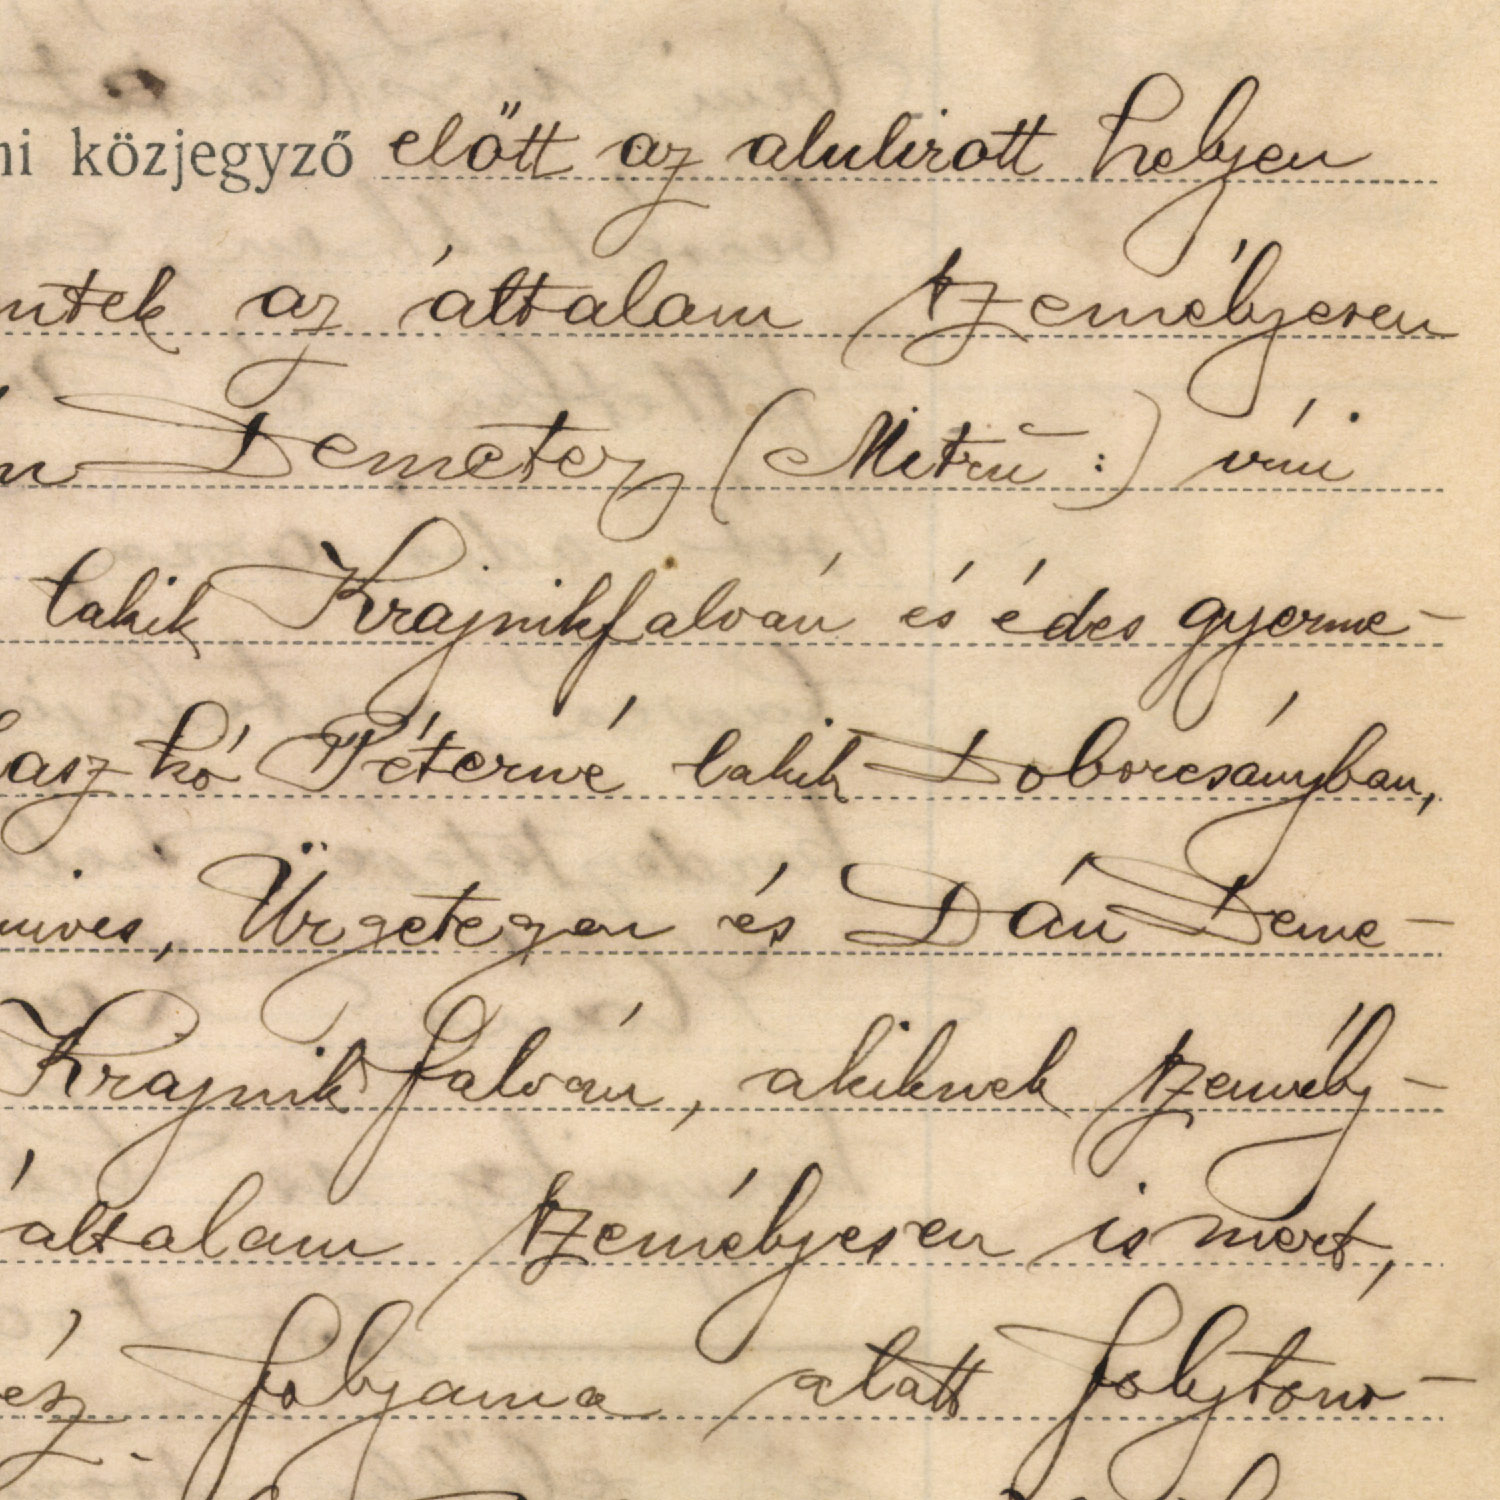 ni közjegyző előtt az alulirott helyen
ntek az általam személyesen
n Demeter (Mitru:) vini
lakik Krajnikfalván és édes gyerme-
aszkó Péterné lakik Doborcsányban,
mives, Ürgetegen és Dán Deme-
Krajnikfalván, akiknek személy-
általam személyesen ismert,
ész folyama alatt folytono-